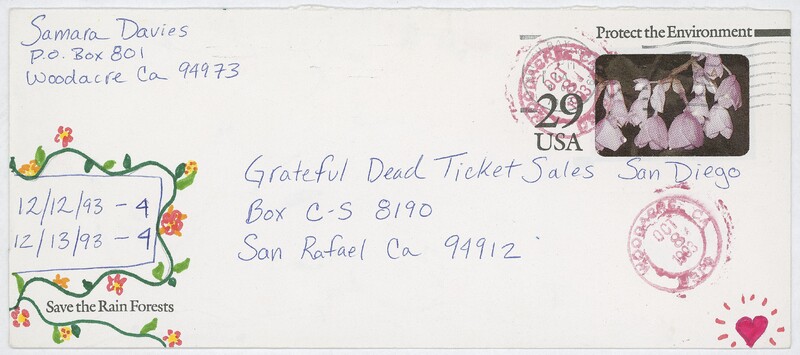 Samara Davies
P.O. Box 801
Woodacre Ca 94973
Protect the Environment
29
USA
WOODACRE, CA
OCT
8
1993
Grateful Dead Ticket Sales San Diego
Box C-S 8190
San Rafael Ca 94912
12/12/93 - 4
12/13/93 - 4
Save the Rain Forests
WOODACRE, CA
OCT
8
1993
USPS